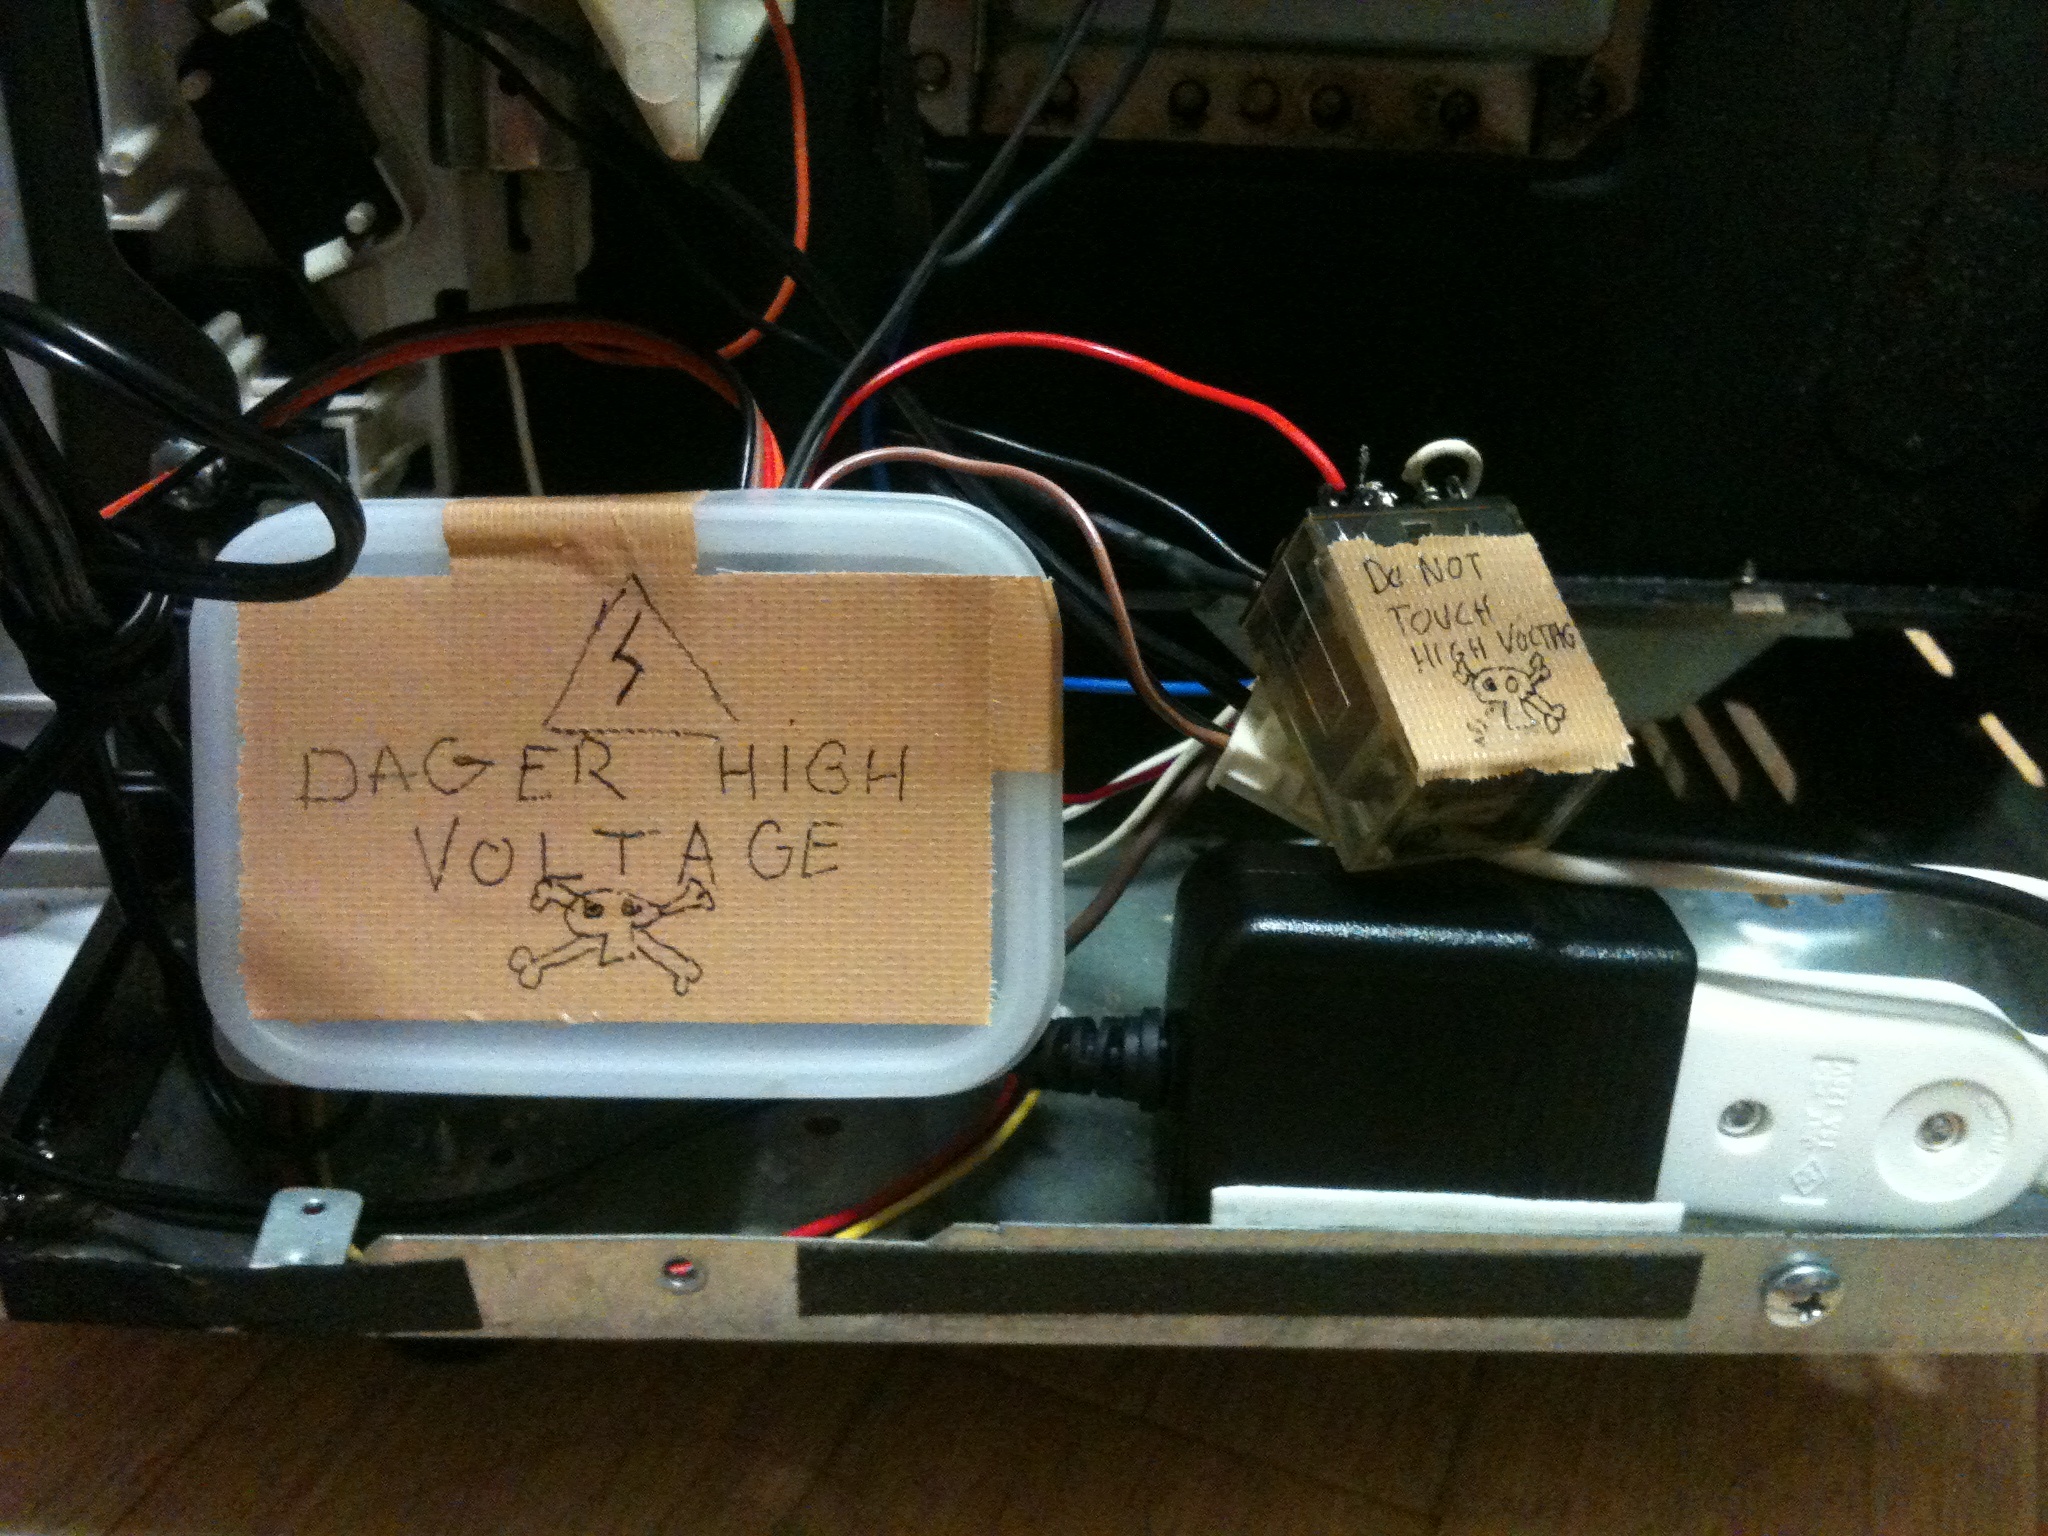 DAGER HIGH
VOLTAGE
Do NOT
TOUCH
HIGH VOLTAG